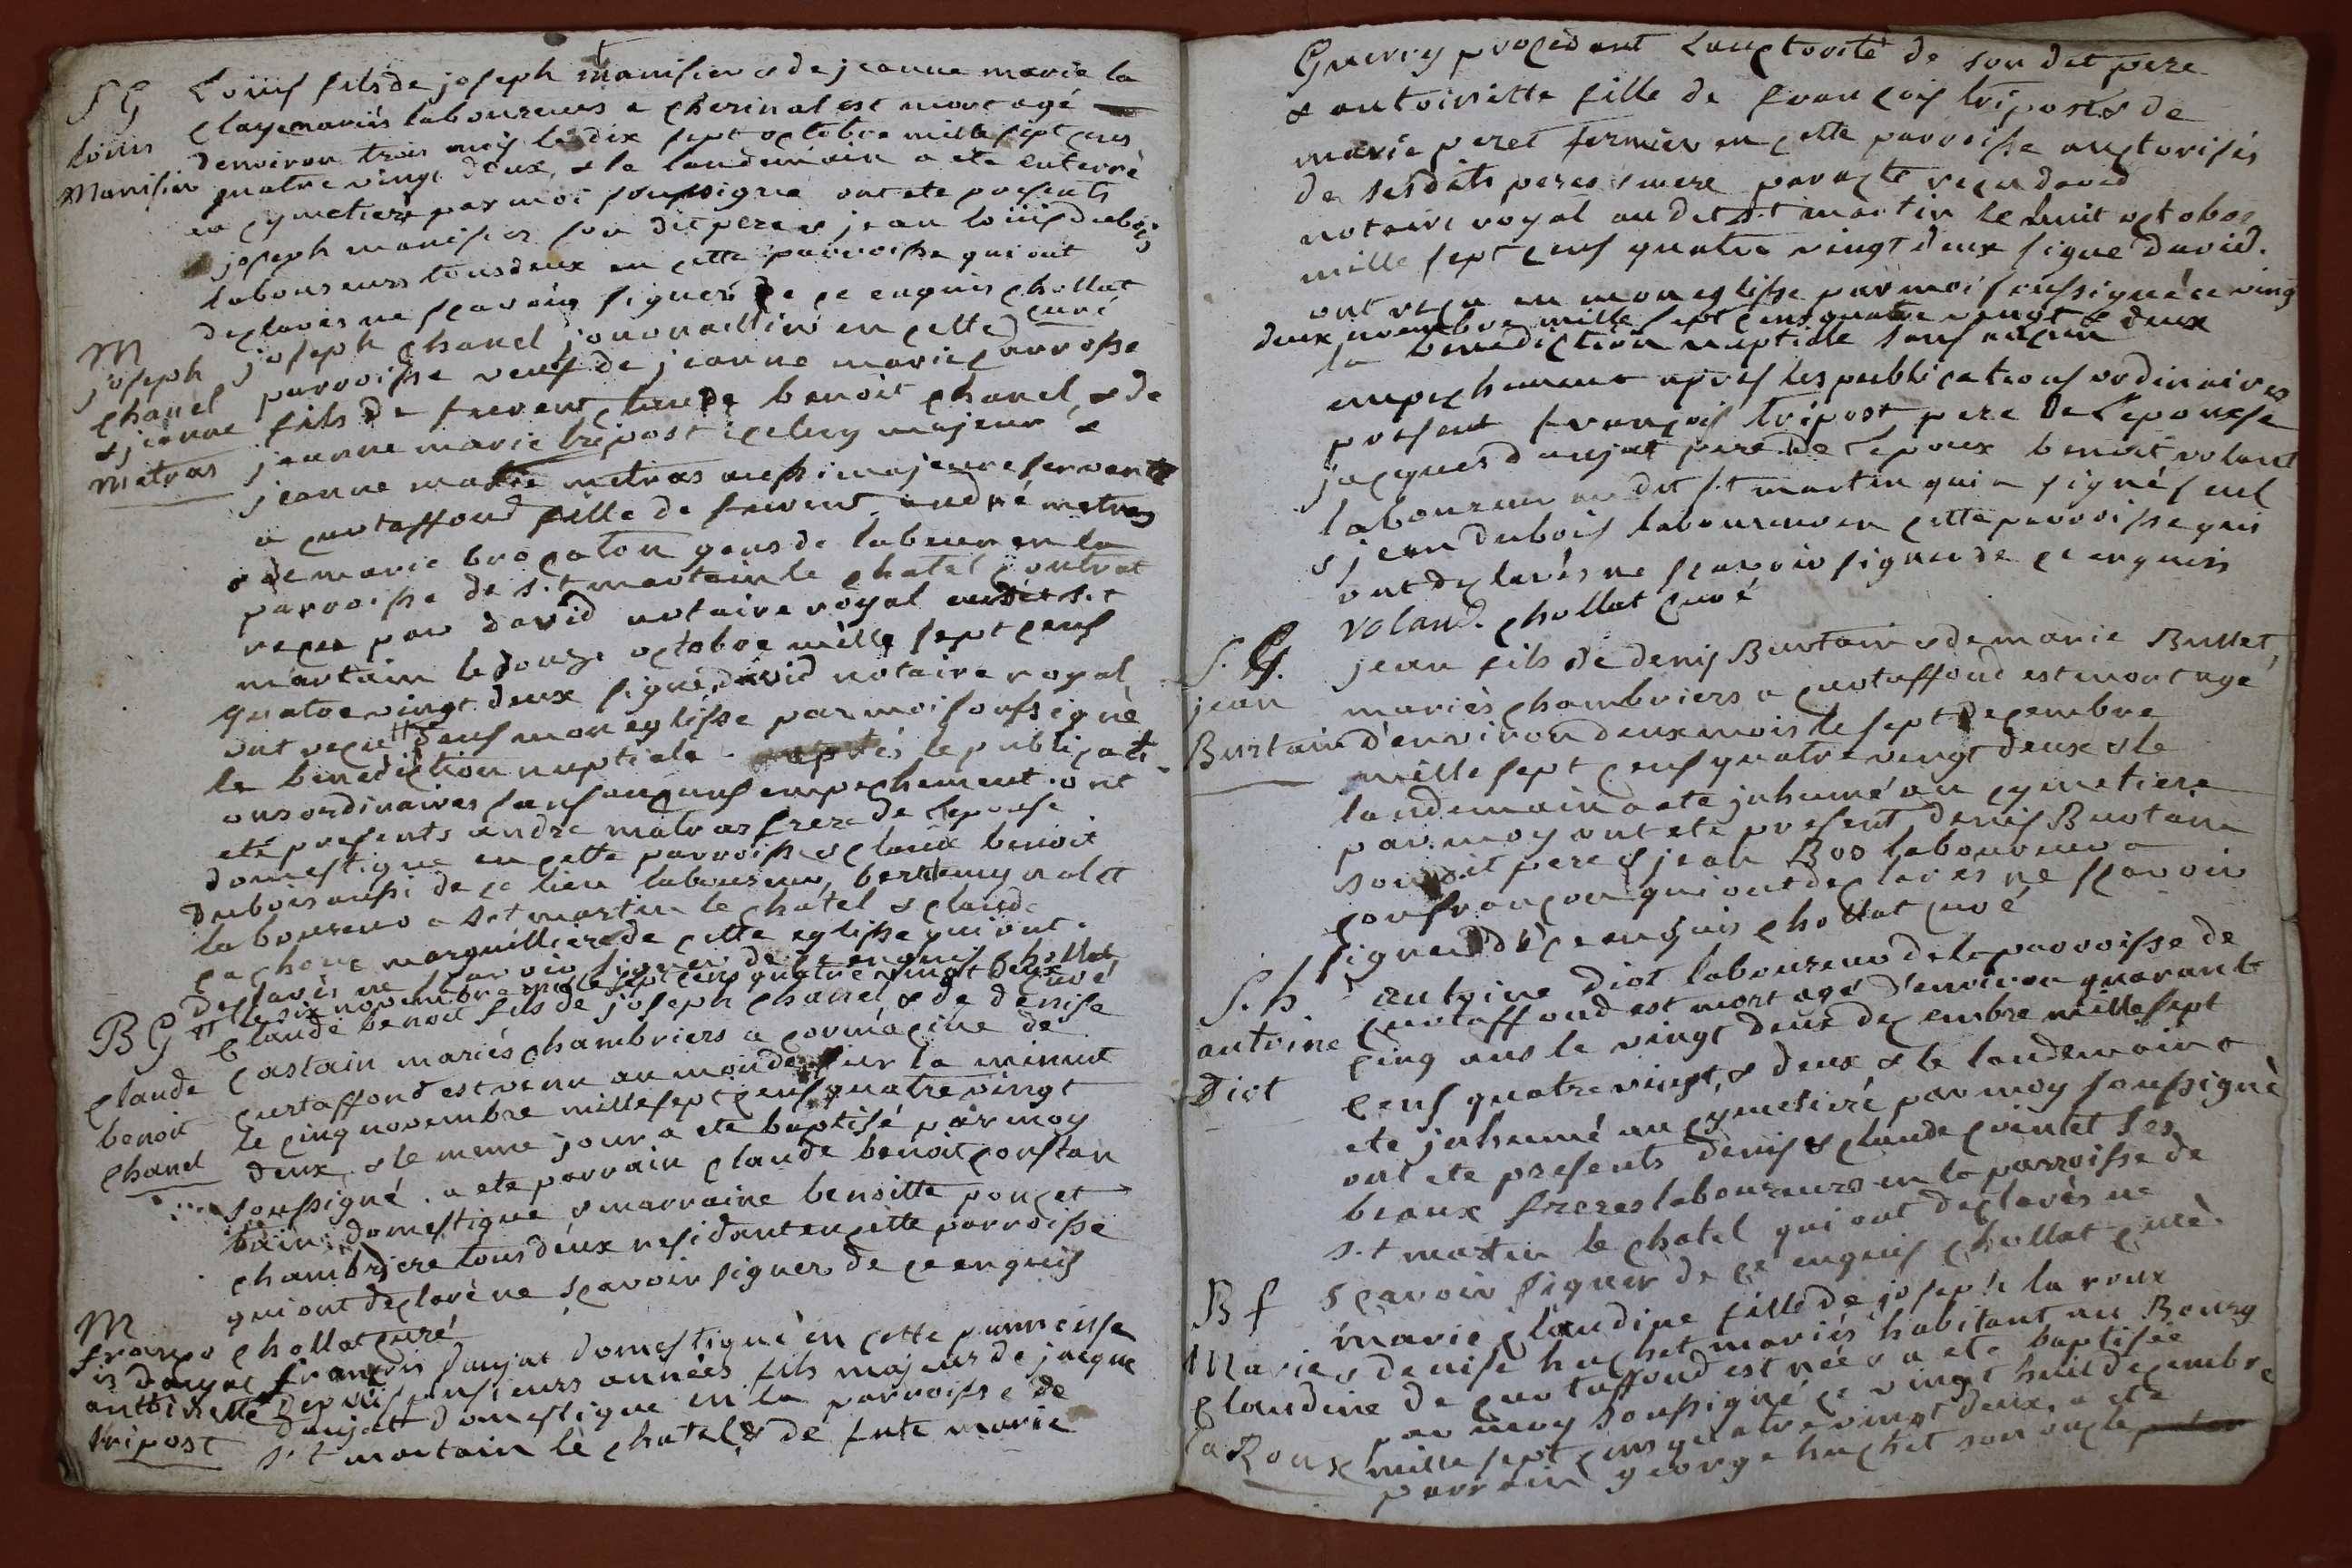 S G Louis fils de joseph manisier & de jeanne marie la
Louis Claye mariés laboureurs a Cherinal est mort agé
Manisier d'environ trois mois le dix sept octobre mille sept cens
quatre vingt deux, & le landemain a ete enterré
au cymetiere par moi soussigné ont ete presents
joseph manisier son dit pere & jean louis dubois
laboureurs tous deux en cette parroisse qui ont
declarés ne scavoir signer de ce enquis chollat
curé
M joseph chanel journallier en cette
joseph parroisse veuf de jeanne marie carrosse
chanel fils de fuerent claude benoit chanel, & de
& jeanne jeanne marie tripost iceluy majeur &
metras jeanne marie metras aussi majeure servante
a curtaffond fille de fuerent andré metras
& de marie brocaton gens de labeur en la
parroisse de s.t martain le chatel contrat
reçu par david notaire royal audit s.t
martain le douze octobre mille sept cens
quatre vingt deux signé, david notaire royal,
ont reçu dans mon eglisse par moi soussigné
la benediction nuptiale apres le publicati
ons ordinaires sans aucuns empechement. ont
eté presents andre matras frere de l'epouse
domestique en cette parroisse & claude benoit
dubois aussi de ce lieu laboureur, bertelemy valet
laboureur a s.t martin le chatel & claude
cachone marguilliere de cette eglisse qui ont
declarés ne scavoir signer de ce enquis chollat
tt le six novembre mille sept cens quatre vingt deux curé
B G claude benoit fils de joseph chanel & de denise
claude castain mariés chambriers a cormacine de
benoit curtaffond est venu au monde sur la minuit
chanel le cinq novembre mille sept cens quatre vingt
deux, & le meme jour a ete baptisé par moy
soussigné. a ete parrain claude benoit constan
tain domestique & marraine benoitte poncet
chambriere tous deux residant en cette parroisse
qui ont declaré ne scavoir signer de ce enquis
chollat curé
M françois daujat domestique en cette parroisse
franço depuis plusieurs années fils majeur de jacque
is daujat daujat domestique en la parroisse de
antoinette s.t martain le chatel, & de fute marie
tripost
Guerry procedant l'auctorité de son dit pere
& antoinette fille de françois tripost & de
marie peret fermier en cette parroisse auctorisés
de ses dits peres & mere par acte reçu david
notaire royal au dit s.t martin le huit octobre
mille sept cens quatre vingt deux signé david.
ont reçu en mon eglisse par moi soussigné ce vingt
deux novembre mille sept cens quatre vingt deux
la benediction nuptiale sans aucun
empechement apres les publications ordinaires
present françois tripost, pere de l'epousse
jacques daujat pere de l'epoux benoit voland
laboureur au dit s.t martin qui a signé seul
& jean dubois laboureur en cette parroisse qui
ont declarés ne scavoir signer de ce enquis
voland. chollat curé
S. G. jean fils de denis Burtain & de marie Bullet,
jean mariés chambriers a curtaffond est mort agé
Burtain d'environ deux mois le sept decembre
mille sept cens quatre vingt deux & le
landemain a ete inhumé au cymetiere
par moy ont ete present denis Burtain
son dit pere & jean Bos laboureur a
confrançon qui ont declarés ne scavoir
signer de ce enquis chollat curé
S. h antoine Diot laboureur de la parroisse de
antoine curtaffond est mort agé d'environ quarante
Diot cinq ans le vingt deux decembre mille sept
cens quatre vingt, & deux & le landemain a
ete inhumé au cymetiere par moy soussigné
ont ete presents denis & claude cointet ses
beaux freres laboureurs en la parroisse de
s.t martin le chatel qui ont declarés ne
scavoir signer de ce enquis chollat curé.
B f marie claudine fille de joseph la roux
Marie & denise huchet mariés habitant au Bourg
claudine de curtaffond est née & a ete baptisée
la Roux par moy soussigné ce vingt huit decembre
mille sept cens quatre vingt deux, a ete
parrain george huchet son oncle